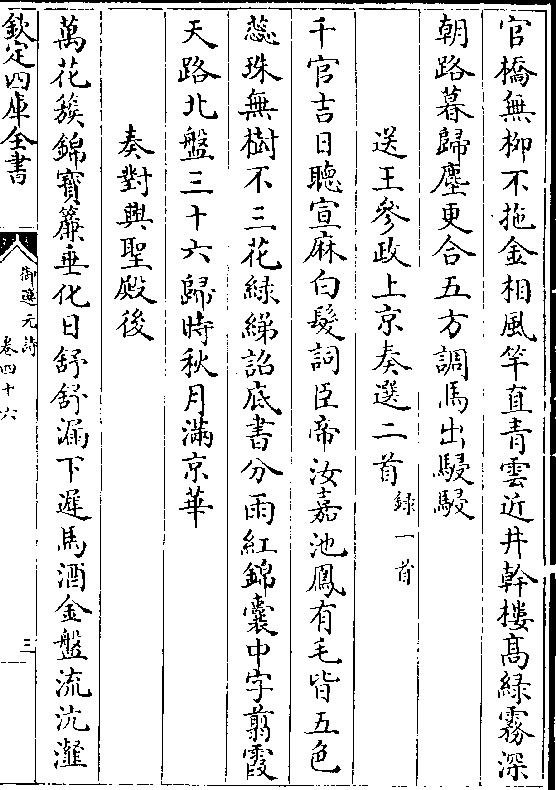 官橋無柳不拖金相風竿直青雲近井幹樓髙緑霧深
朝路暮歸塵更合五方調馬出駸駸
送王參政上京奏選二首録一首
千官吉日聽宣麻白髮詞臣帝汝嘉池鳳有毛皆五色
蕊珠無樹不三花緑綈詔底書分雨紅錦囊中字翦霞
天路北盤三十六歸時秋月滿京華
奏對興聖殿後
萬花簇錦寳簾垂化日舒舒漏下遲馬酒金盤流沆瀣
欽定四庫全書
御選元詩
卷四十六
三